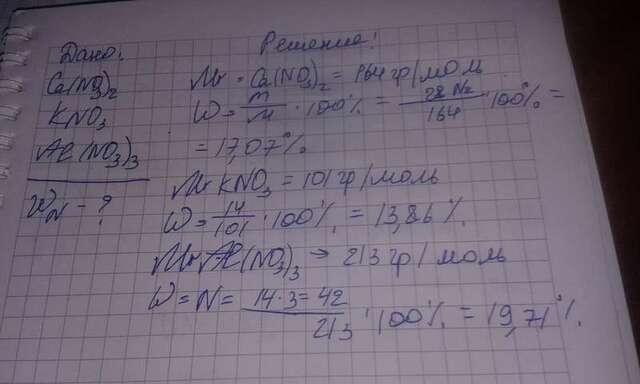 Дано:
Ca(NO3)2
KNO3
Al(NO3)3
WN - ?
Решение:
Mr = Ca(NO3)2 = 164 гр/моль
W = m/M · 100% = 28 N2/164 · 100% =
= 17,07%
Mr KNO3 = 101 гр/моль
W = 14/101 · 100% = 13,86%
Mr Al(NO3)3 → 213 гр/моль
W = N = 14·3=42/213 · 100% = 19,71%